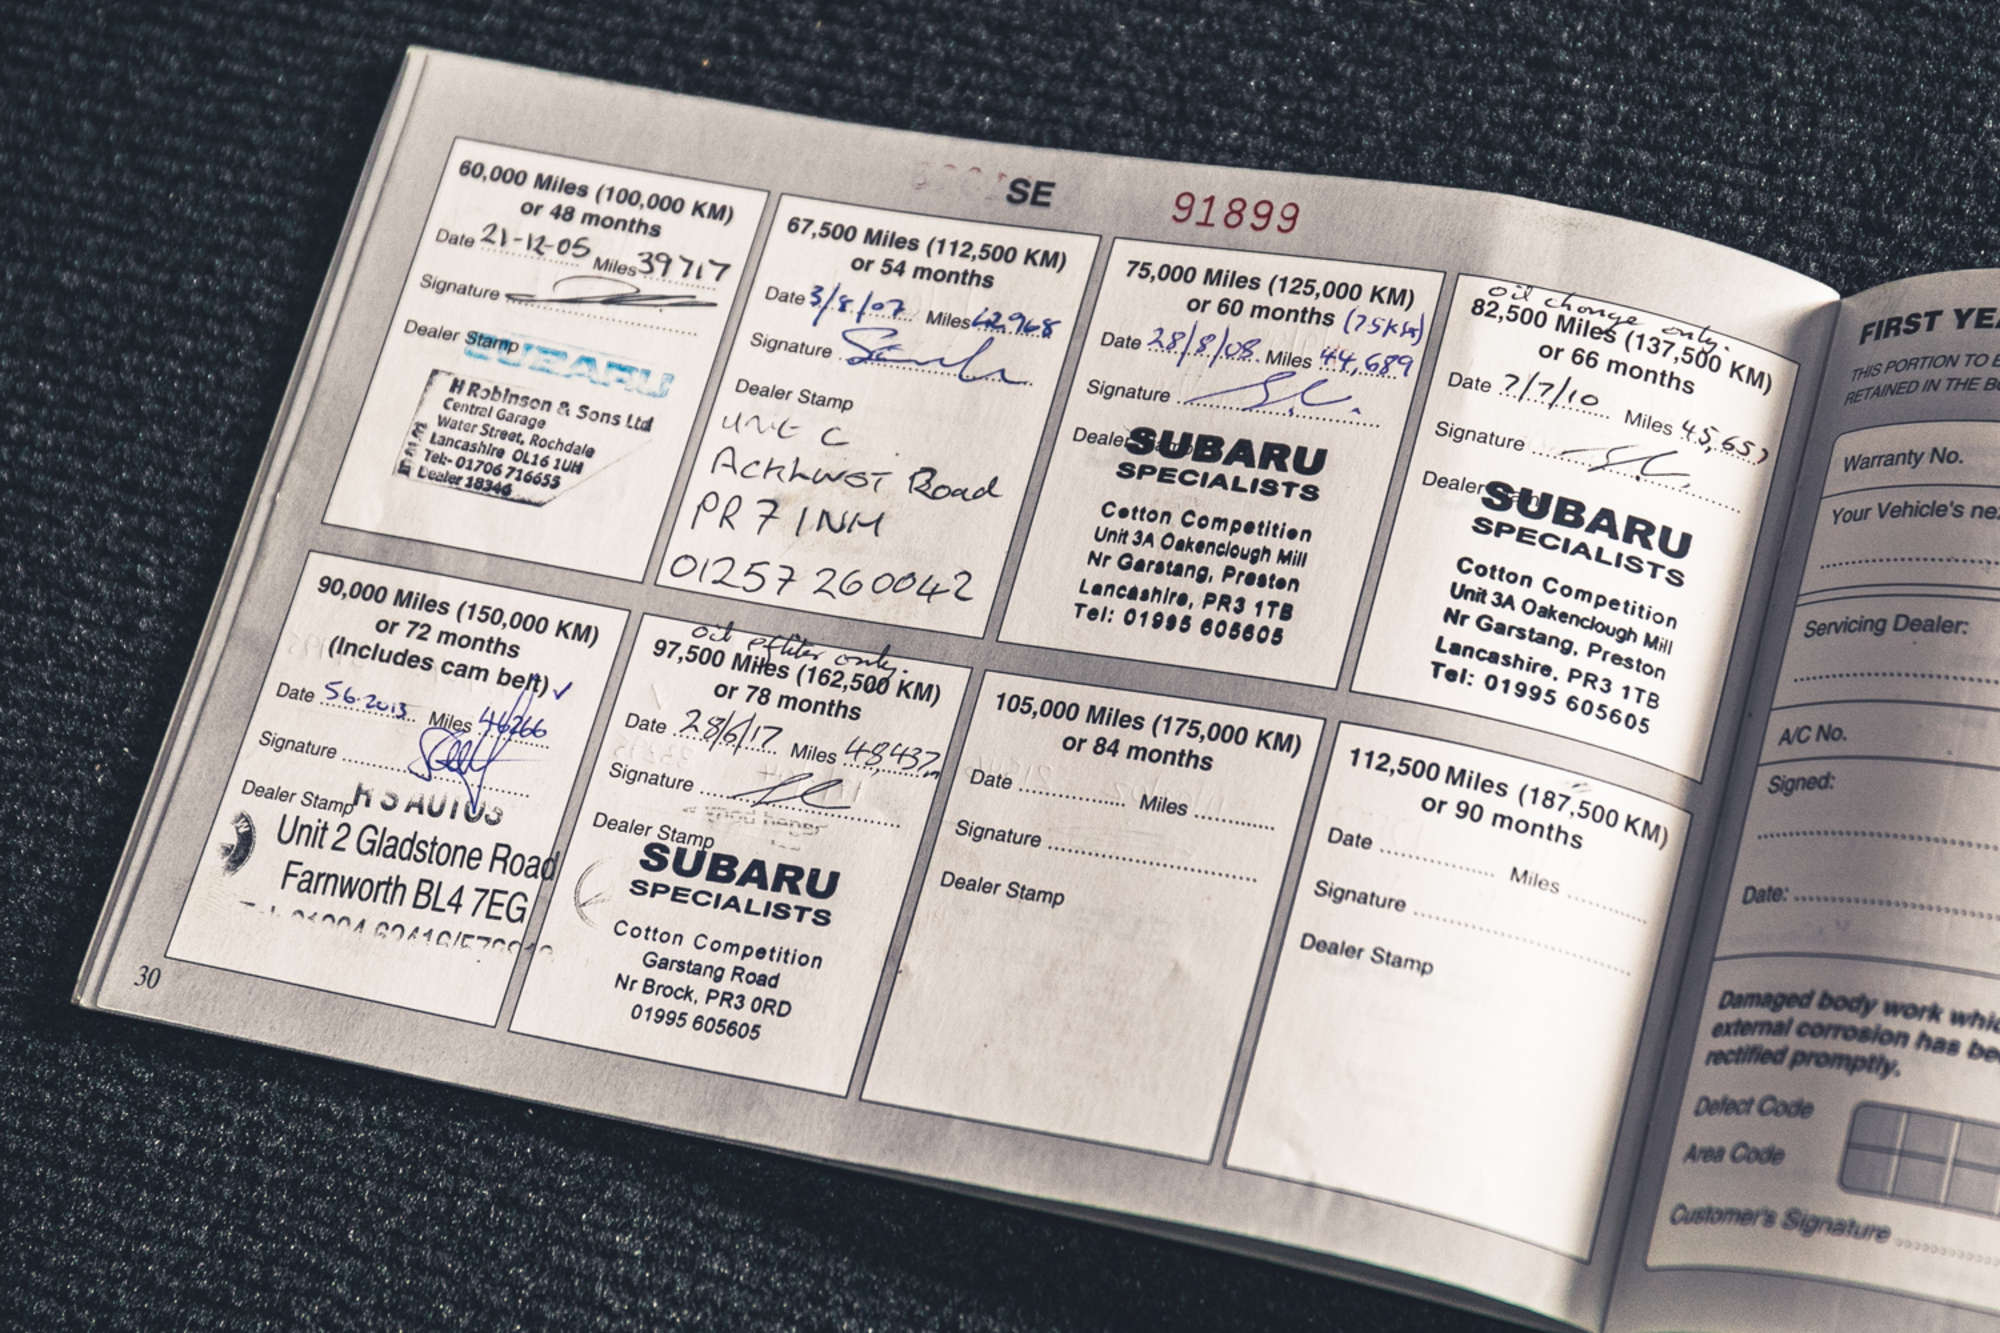 SE 91899
60,000 Miles (100,000 KM)
or 48 months
Date 21-12-05 Miles 39717
Signature
Dealer Stamp
SUBARU
H Robinson & Sons Ltd
Central Garage
Water Street, Rochdale
Lancashire OL16 1UH
Tel:- 01706 716655
Dealer 18346
67,500 Miles (112,500 KM)
or 54 months
Date 3/8/07 Miles 42968
Signature
Dealer Stamp
UNIT C
Ackhurst Road
PR7 1NH
01257 260042
75,000 Miles (125,000 KM)
or 60 months (75K)
Date 28/8/08 Miles 44,689
Signature
Dealer
SUBARU
SPECIALISTS
Cotton Competition
Unit 3A Oakenclough Mill
Nr Garstang, Preston
Lancashire, PR3 1TB
Tel: 01995 605605
oil change only.
82,500 Miles (137,500 KM)
or 66 months
Date 7/7/10 Miles 45,657
Signature
Dealer
SUBARU
SPECIALISTS
Cotton Competition
Unit 3A Oakenclough Mill
Nr Garstang, Preston
Lancashire, PR3 1TB
Tel: 01995 605605
90,000 Miles (150,000 KM)
or 72 months
(Includes cam belt) ✓
Date 5.6.2013 Miles 46266
Signature
Dealer Stamp
R S AUTOS
Unit 2 Gladstone Road
Farnworth BL4 7EG
oil & filter only.
97,500 Miles (162,500 KM)
or 78 months
Date 28/6/17 Miles 48,437
Signature
Dealer Stamp
SUBARU
SPECIALISTS
Cotton Competition
Garstang Road
Nr Brock, PR3 0RD
01995 605605
105,000 Miles (175,000 KM)
or 84 months
Date Miles
Signature
Dealer Stamp
112,500 Miles (187,500 KM)
or 90 months
Date Miles
Signature
Dealer Stamp
30
FIRST YE
THIS PORTION TO
RETAINED IN THE
Warranty No.
Your Vehicle's
Servicing Dealer:
A/C No.
Signed:
Date:
Damaged body work
external corrosion has
rectified promptly.
Defect Code
Area Code
Customer's Signature